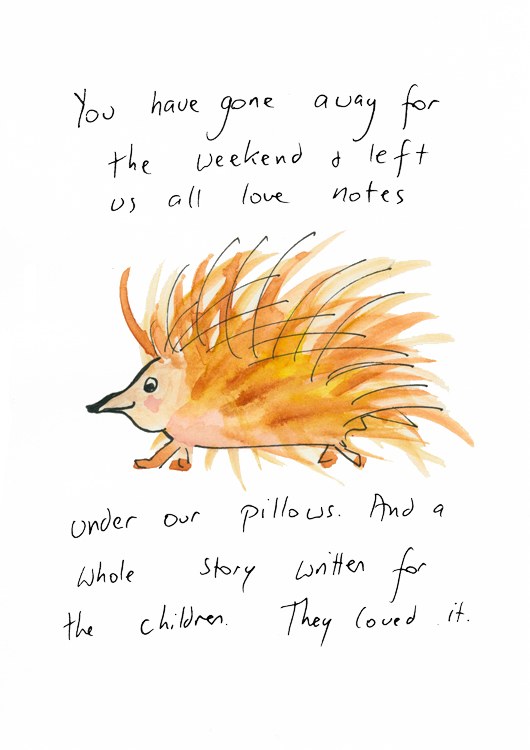 You have gone away for
the weekend & left
us all love notes
under our pillows. And a
whole story written for
the children. They loved it.